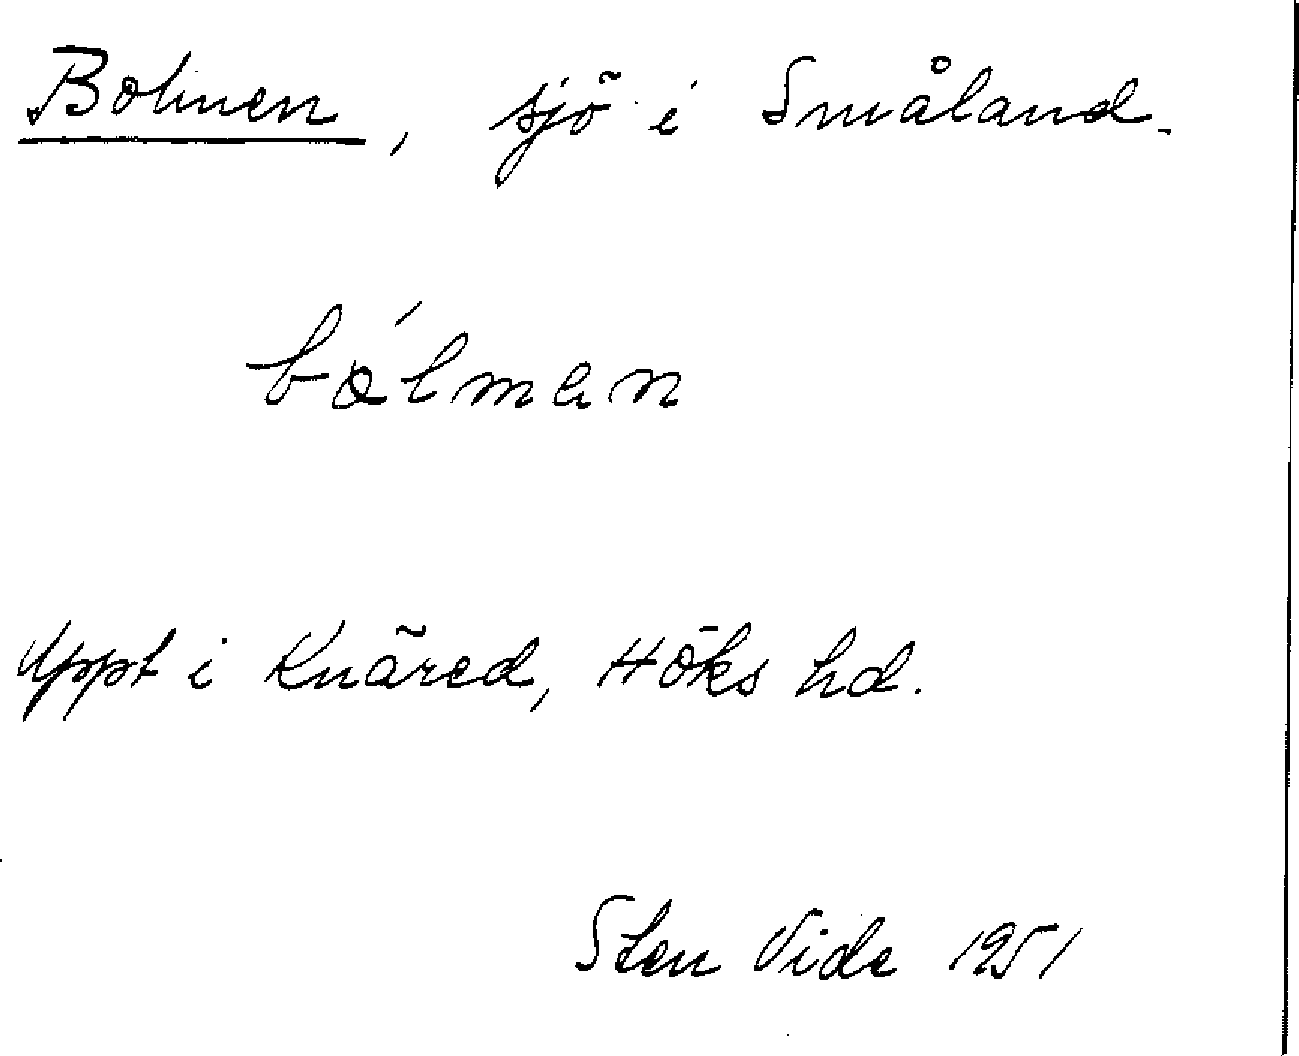 Bolmen, sjö i Småland.
bólmen
Uppt i Knäred, Höks hd.
Sten Vide 1951